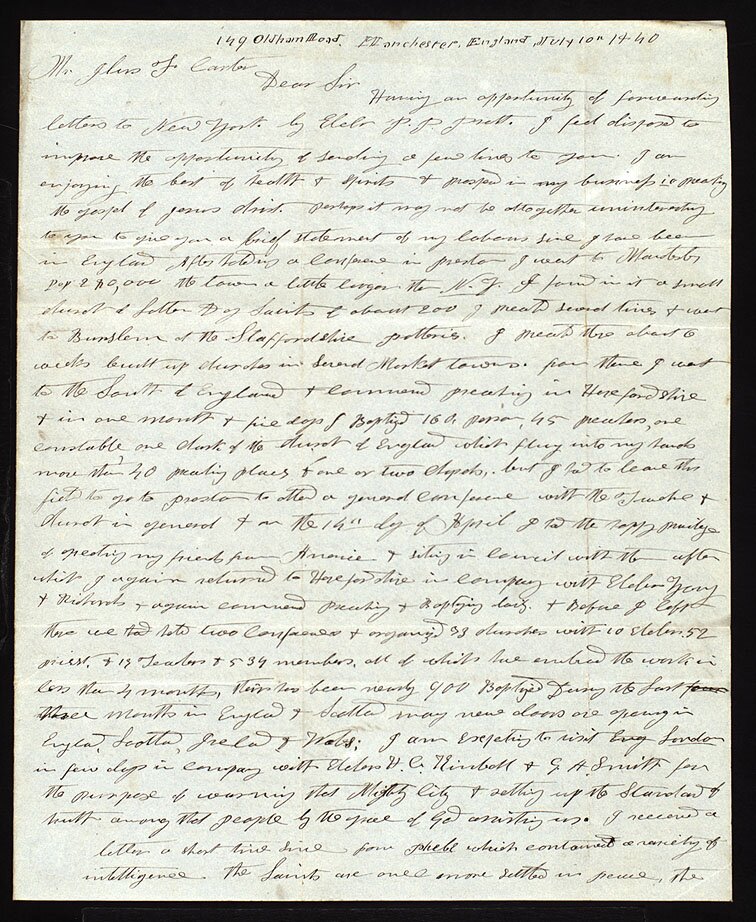 149 Oldham Road. Manchester. England, July 10th 1840
Mr. Ilus F Carter
Dear Sir
Having an opportunity of forwarding
letters to New York by Elder P. P. Pratt. I feel disposed to
improve the opportunity of sending a few lines to you. I am
enjoying the best of health & spirits & prosper in my business in preaching
the gospel of jesus christ. perhaps it may not be altogether uninteresting
to you to give you a brief statement of my labours since I have been
in England After holding a conference in preston I went to Manchester
Pop 280,000 the town a little larger than N.Y. I found in it a small
church of Latter Day Saints of about 200 I preached several times & went
to Burslem at the Staffordshire potteries. I preached there about 6
weeks built up churches in several Market towns. from there I went
to the South of England & commenced preaching in Herefordshire
& in one month & five days I Baptized 160 person, 45 preachers one
constable one clark of the church of England which flung into my hands
more than 40 preaching places & one or two chapels,. but I had to leave this
field to go to preston to attend a general conference with the Twelve &
church in general & on the 14th day of April I had the happy privilege
of greeting my friends from America & sitting in council with them after
which I again returned to Herefordshire in company with Elders Young
& Richards & again commenced preaching & Baptizing daily. & Before I left
there we had held two conferences & organized 33 churches with 10 Elders 52
priest. & 13 Teachers & 534 members, all of which have embraced the work in
less than 4 months, there has been nearly 900 Baptized During the last four
three months in England & Scotland many new doors are opening in
England, Scotland, Ireland & Wales; I am Expecting to visit Eng London
in few days in company with Elders H. C. Kimball & G. A. Smith for
the purpose of warning that Mighty City & setting up the Standard of
truth among that people by the grace of God assisting us. I received a
letter a short time since from phebe which contained a variety of
intelligence the Saints are once more settled in peace, the